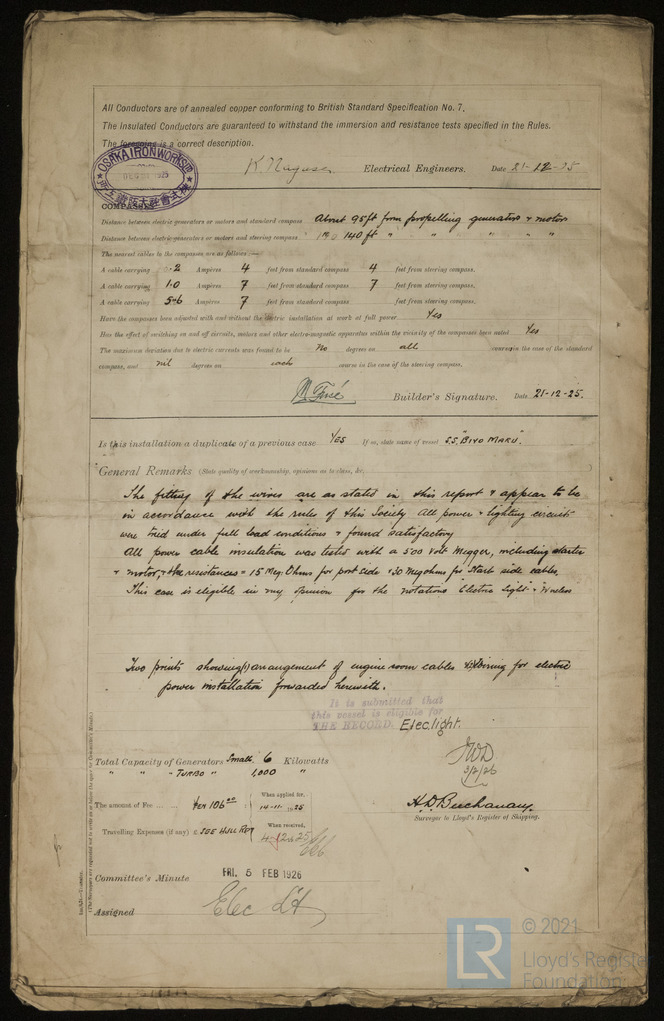 All Conductors are of annealed copper conforming to British Standard Specification No. 7.
The Insulated Conductors are guaranteed to withstand the immersion and resistance tests specified in the Rules.
The foregoing is a correct description.
OSAKA IRON WORKS LTD
Electrical Engineers. Date 21-12-25
COMPASSES.
Distance between electric generators or motors and standard compass About 95 ft from propelling generators & motor
Distance between electric generators or motors and steering compass 140 ft " " " "
The nearest cables to the compasses are as follows:—
A cable carrying .2 Ampères 4 feet from standard compass 4 feet from steering compass.
A cable carrying 1.0 Ampères 7 feet from standard compass 7 feet from steering compass.
A cable carrying 5.6 Ampères 7 feet from standard compass feet from steering compass.
Have the compasses been adjusted with and without the electric installation at work at full power Yes
Has the effect of switching on and off circuits, motors and other electro-magnetic apparatus within the vicinity of the compasses been noted Yes
The maximum deviation due to electric currents was found to be No degrees on all course in the case of the standard
compass, and nil degrees on each course in the case of the steering compass.
Builder's Signature. Date 21-12-25.
Is this installation a duplicate of a previous case YES If so, state name of vessel S.S. "BIYO MARU".
General Remarks (State quality of workmanship, opinions as to class, &c.
The fitting of the wires are as stated in this report & appear to be
in accordance with the rules of this Society All power & lighting circuits
were tried under full load conditions & found satisfactory
All power cable insulation was tested with a 500 Volt Megger, including starter
& motor, & the resistances = 15 Meg. Ohms for port side & 30 Megohms for Starb side cables.
This case is eligible in my opinion for the notations "Electric light" & Wireless
Two prints showing (1) arrangement of engine room cables & wiring for electric
power installation forwarded herewith.
It is submitted that
this vessel is eligible for
THE RECORD. Elec. light.
JWD
3/2/26
Total Capacity of Generators Small 6 Kilowatts
" " " TURBO " 1,000 "
The amount of Fee ... ... Yen 106.00 When applied for, 14-11-1925
H.D. Buchanan.
Surveyor to Lloyd's Register of Shipping.
Travelling Expenses (if any) £ SEE HULL RPT When received, 4.12.25
Committee's Minute FRI. 5 FEB 1926
Assigned Elec Lt
(The Surveyors are requested not to write on or below the space for Committee's Minute.)
© 2021
LR Lloyd's Register
Foundation